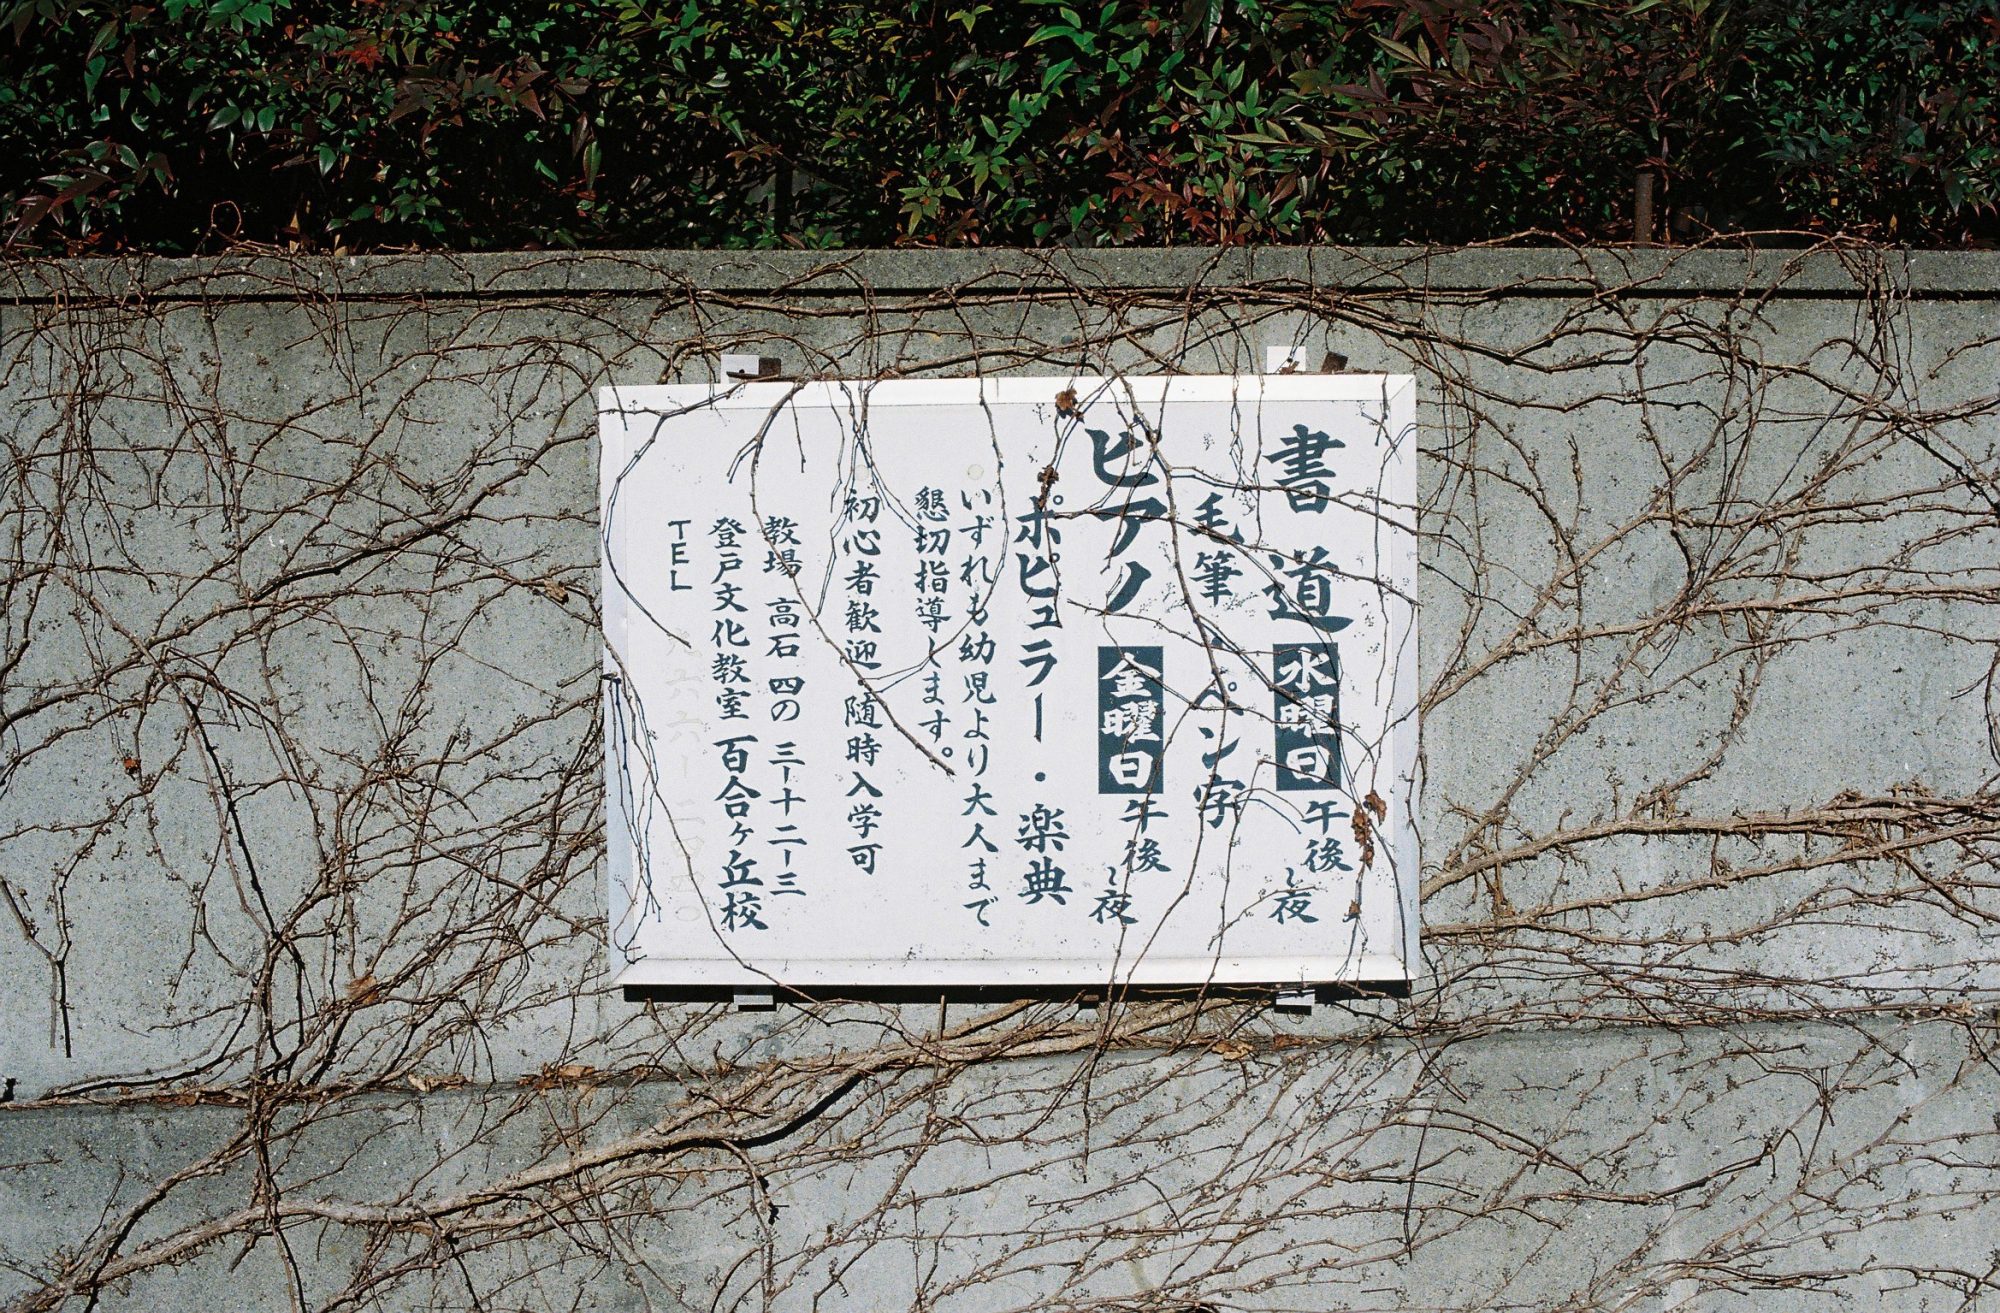 書道 水曜日 午後~夜
毛筆・ペン字
ピアノ 金曜日 午後~夜
ポピュラー・楽典
いずれも幼児より大人まで
懇切指導します。
初心者歓迎 随時入学可
教場 高石 四の 三ー十二ー三
登戸文化教室 百合ヶ丘校
TEL